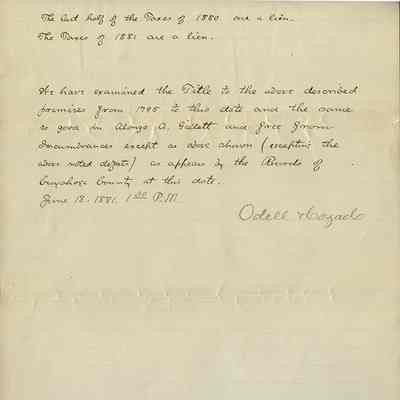 The last half of the Taxes of 1880 are a lien.
The Taxes of 1881 are a lien.
We have examined the Title to the above described
premises from 1795 to this date and the same
is good in Alonzo A. Gillett and free from
Incumbrances except as above shown (excepting the
above noted defects) as appears by the Records of
Cuyahoga County at this date.
June 18. 1881. 1 00 P.M.
Odell & Cozad